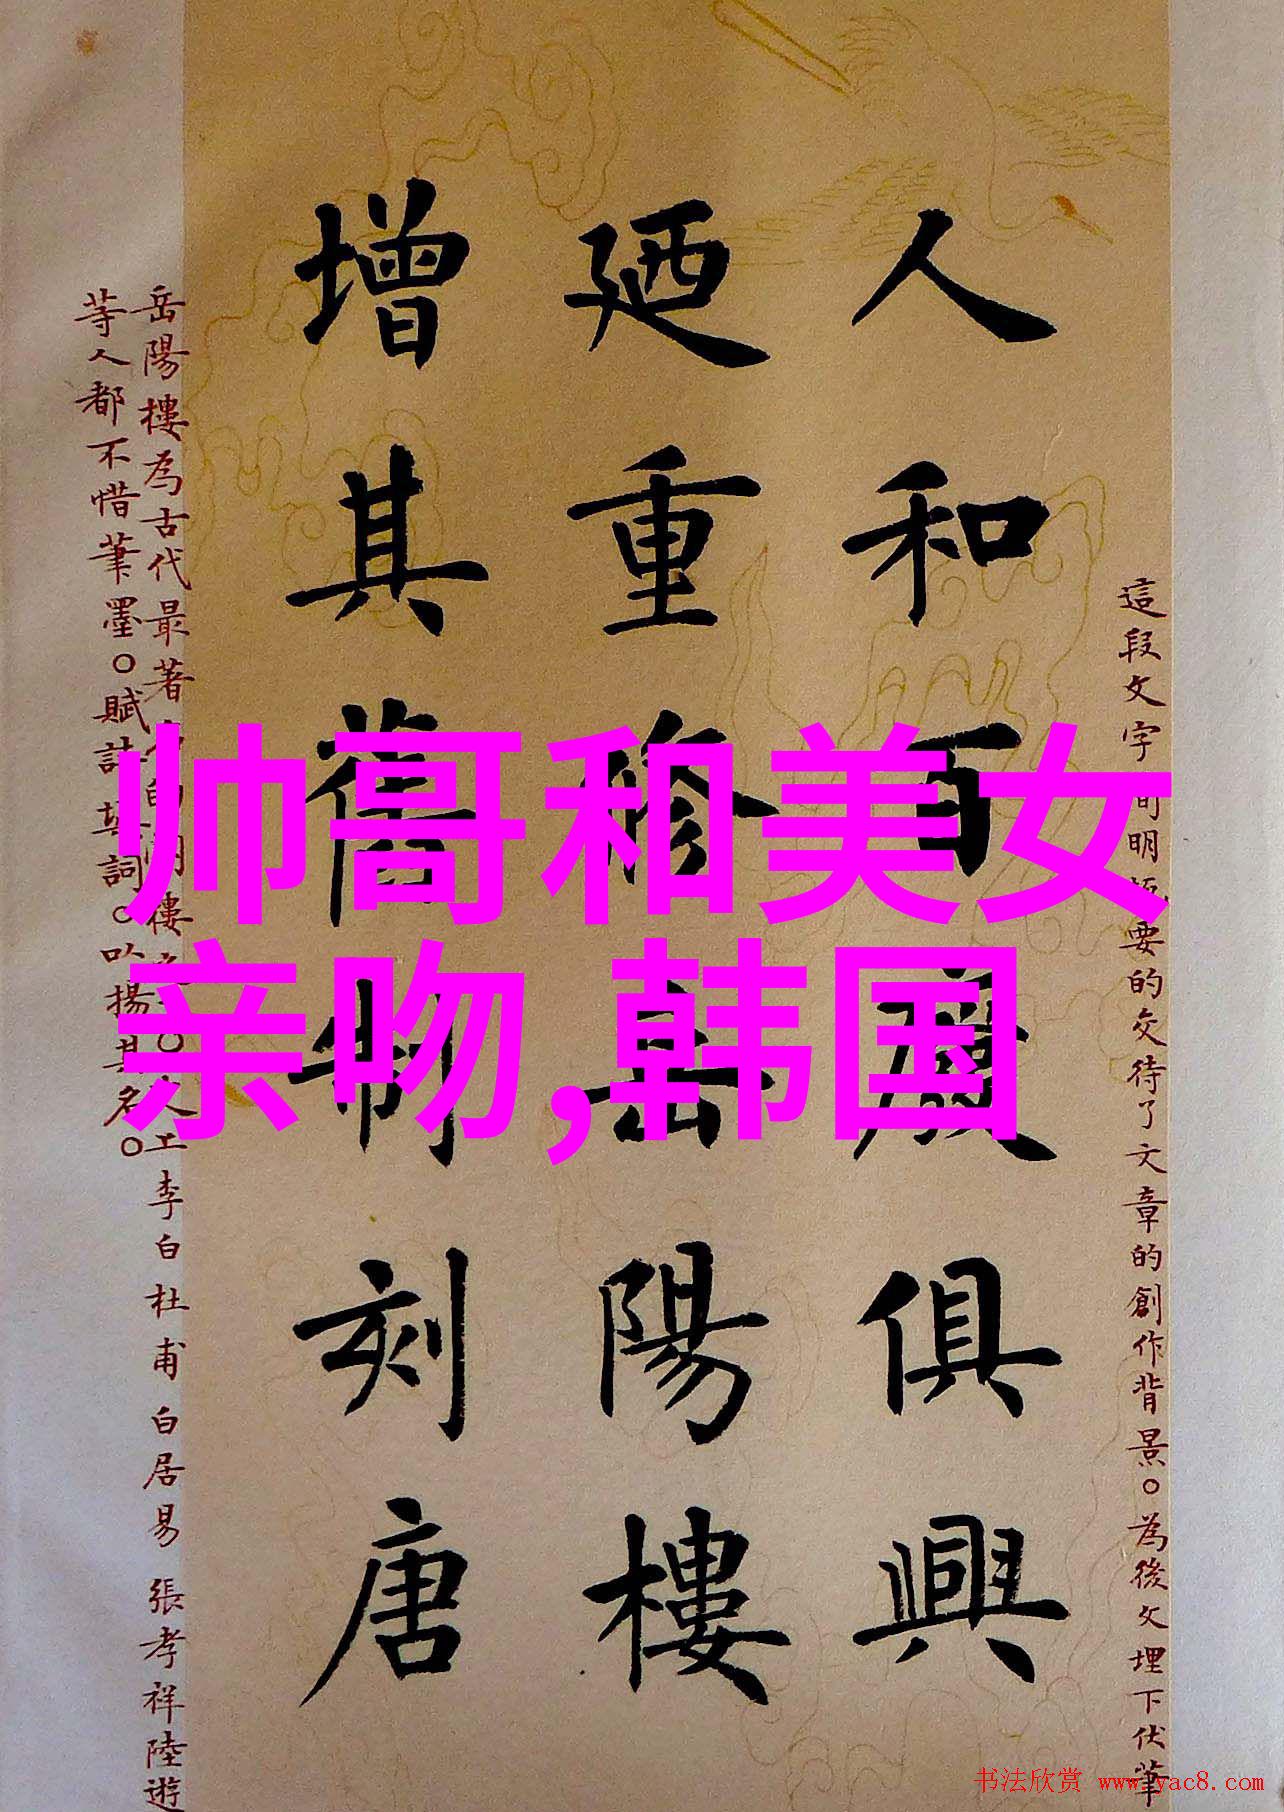 這段文字明要的交待了文章的創作背景。為後文埋下伏筆
人和百廢俱興
廼重修岳陽樓
增其舊制刻唐
岳陽樓為古代最著樓。人工李白杜甫白居易張孝祥陸遊
等人都不惜筆墨。賦詩填詞。以揚其名。
帅哥和美女
亲吻,韩国
书法欣赏 www.yac8.com